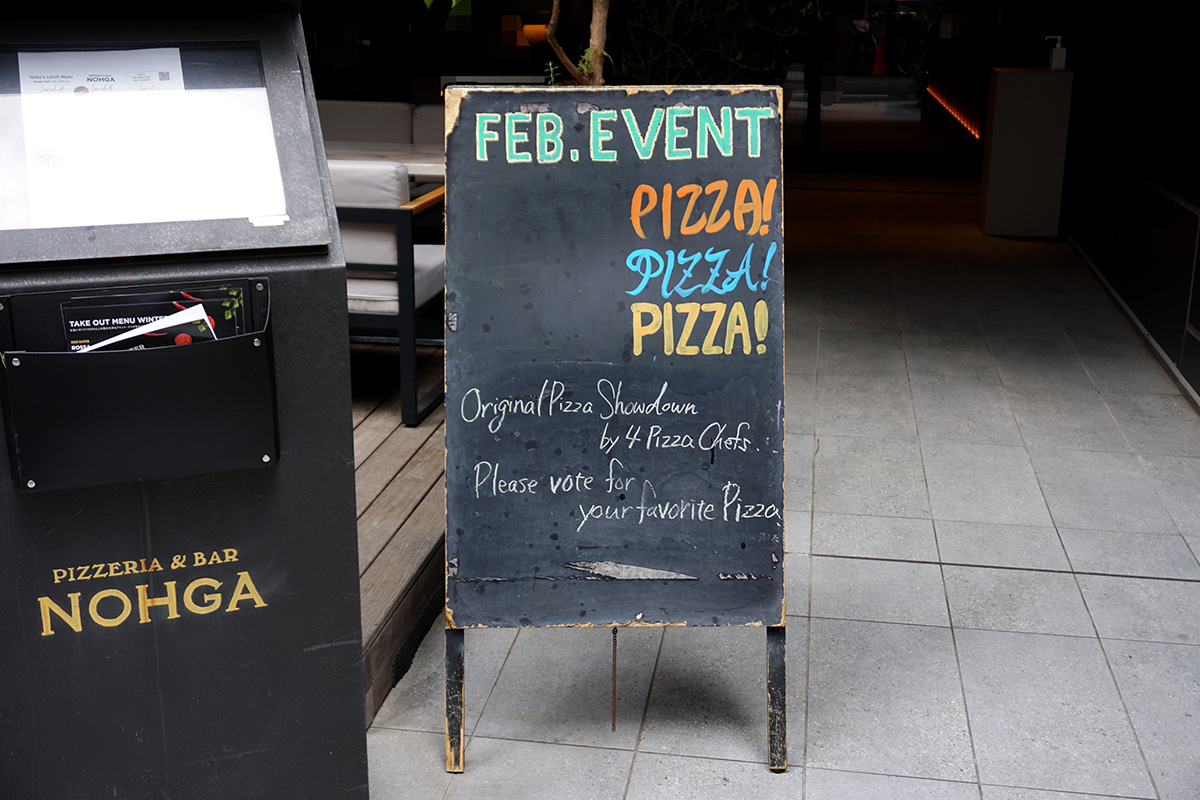 Today's Lunch Menu
NOHGA
TAKE OUT MENU WINTER
ROSSA
PIZZERIA & BAR
NOHGA
FEB. EVENT
PIZZA!
PIZZA!
PIZZA!
Original Pizza Showdown
by 4 Pizza Chefs.
Please vote for
your favorite Pizza